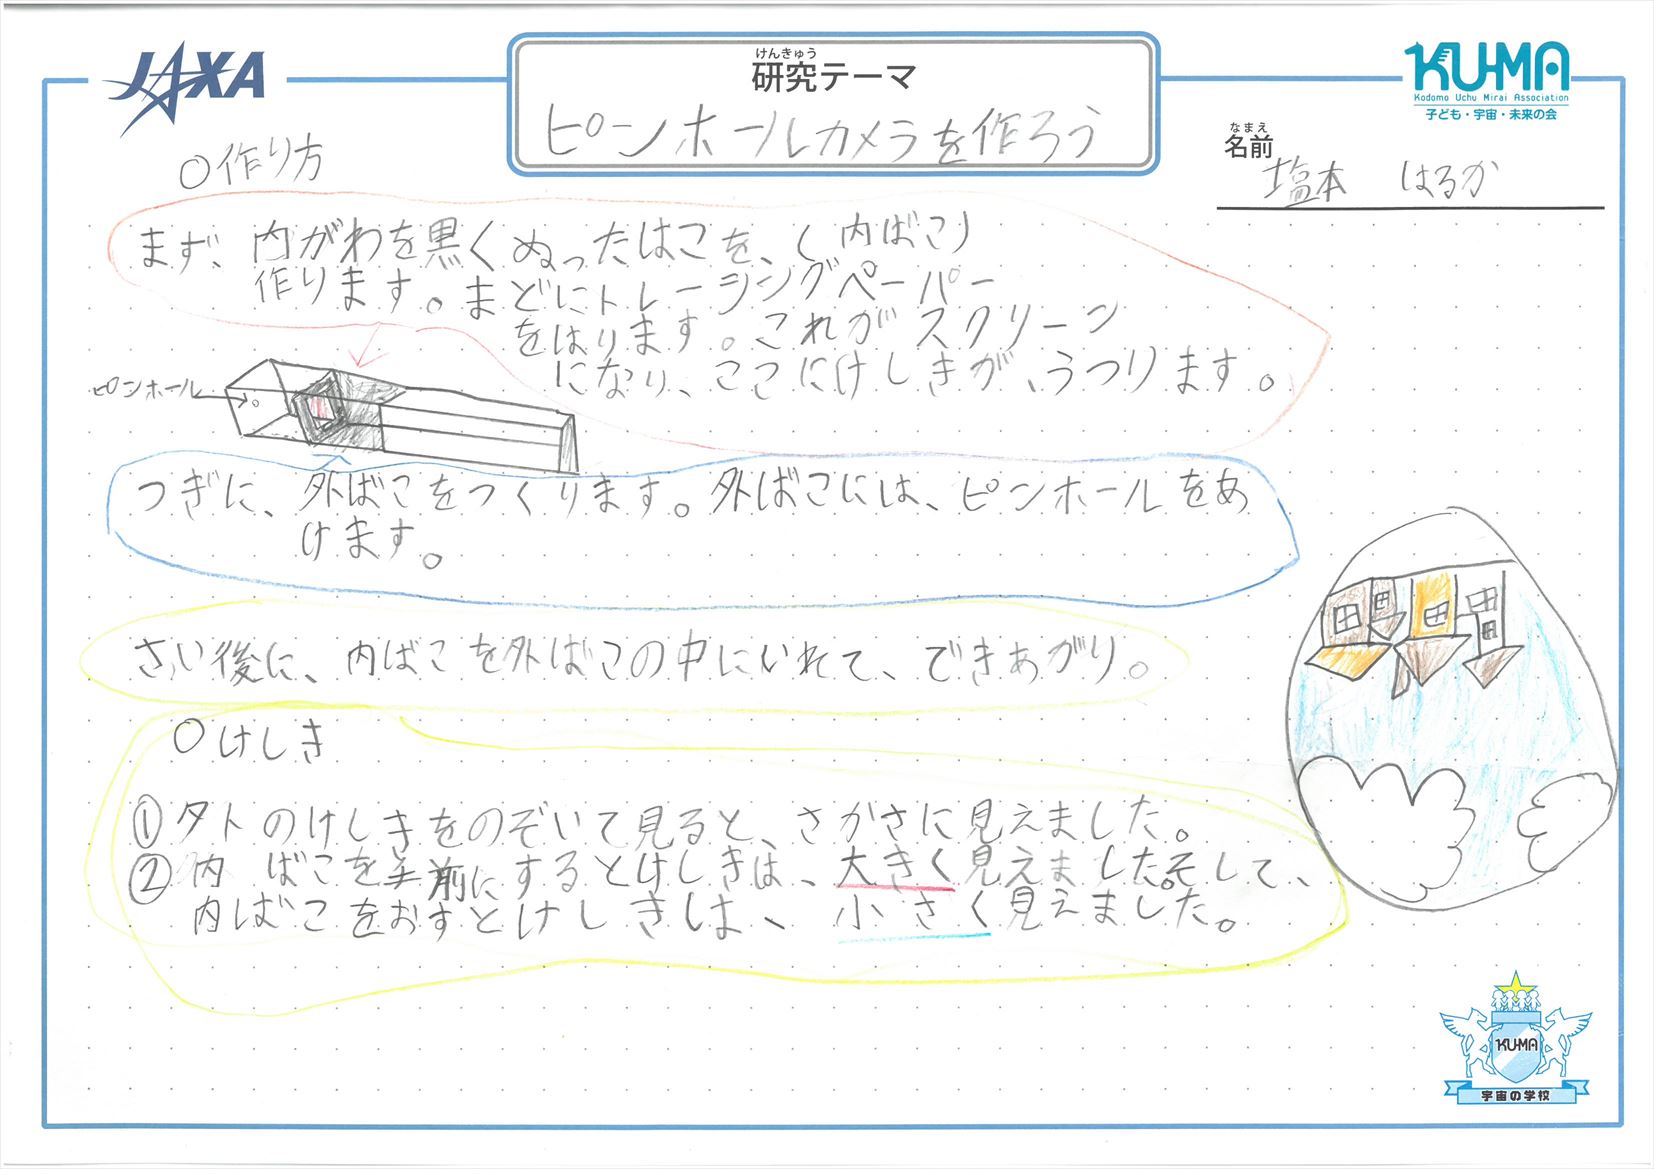 JAXA
けんきゅう
研究テーマ
ピンホールカメラを作ろう
KU-MA
Kodomo Uchu Mirai Association
子ども・宇宙・未来の会
なまえ
名前
塩本 はるか
○作り方
まず、内がわを黒くぬったはこを、(内ばこ)
作ります。まどにトレーシングペーパー
をはります。これがスクリーン
になり、ここにけしきが、うつります。
ピンホール
つぎに、外ばこをつくります。外ばこには、ピンホールをあ
けます。
さい後に、内ばこを外ばこの中にいれて、できあがり。
○けしき
①外のけしきをのぞいて見ると、さかさに見えました。
②内ばこを手前にするとけしきは、大きく見えました。そして、
内ばこをおすとけしきは、小さく見えました。
KU-MA
宇宙の学校